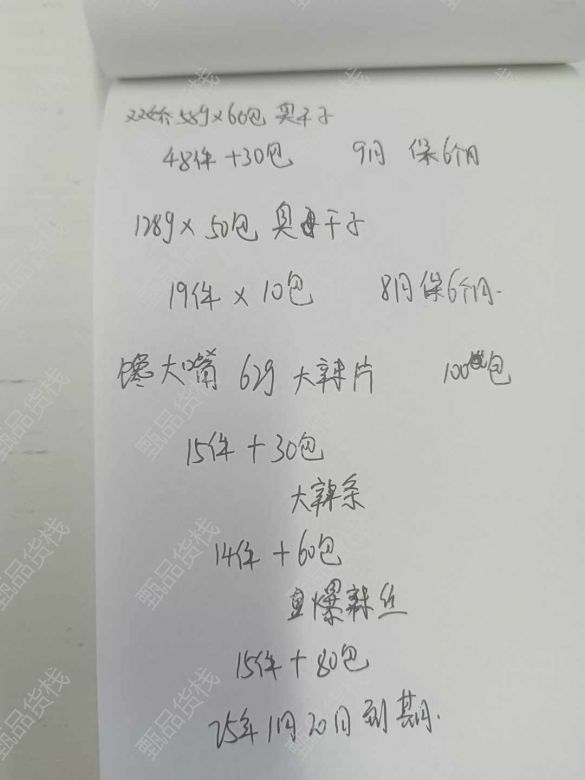 589×60包 臭干子
48件+30包 9月 保6个月
128g×50包 臭干子
19件×10包 8月保6个月.
馋大嘴 62g 大辣片 100包
15件+30包
大辣条
14件+60包
爆辣丝
15件+80包
25年1月20日到期.
甄品货栈